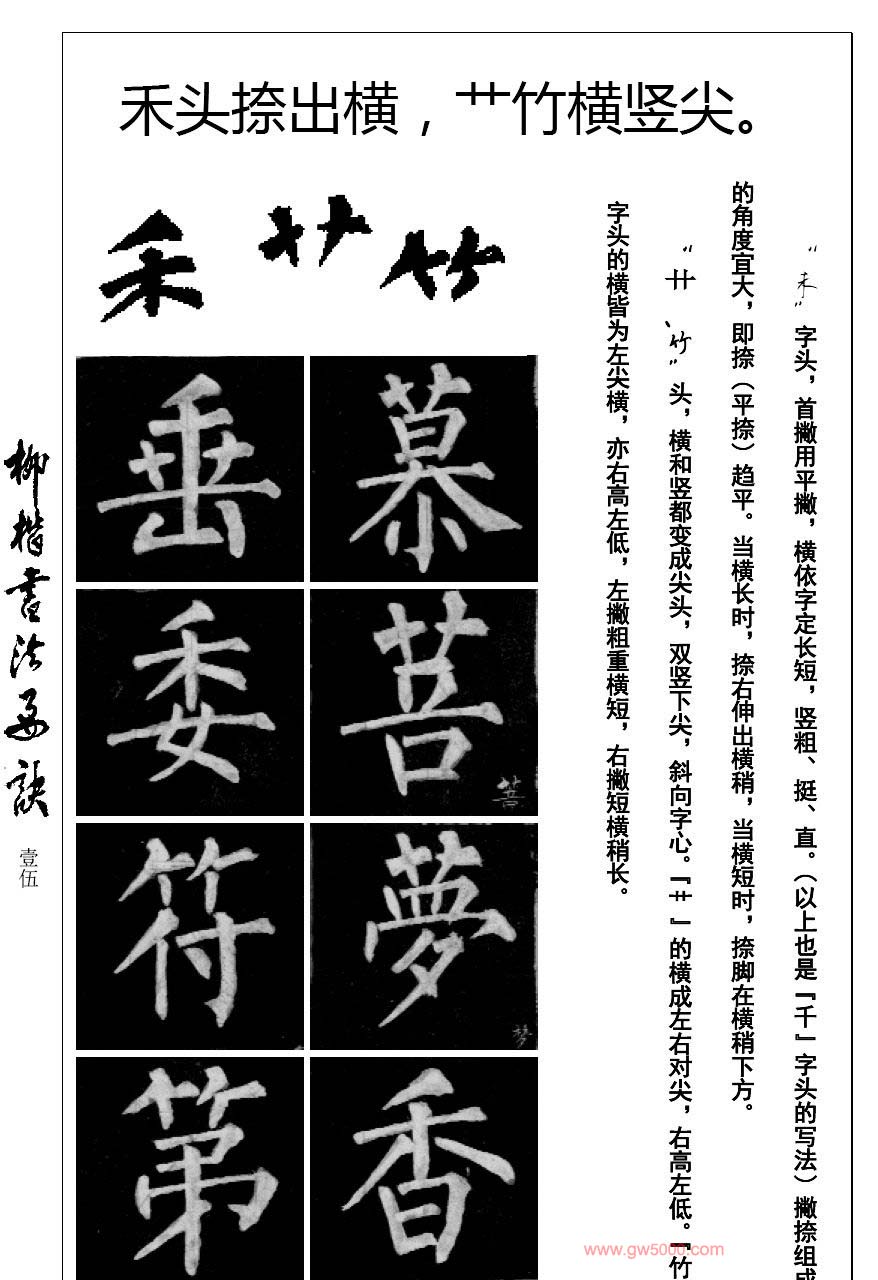 禾头捺出横，艹竹横竖尖。
“禾”字头，首撇用平撇，横依字定长短，竖粗、挺、直。（以上也是『千』字头的写法）撇捺组成
的角度宜大，即捺（平捺）趋平。当横长时，捺右伸出横稍，当横短时，捺脚在横稍下方。
“艹、竹”头，横和竖都变成尖头，双竖下尖，斜向字心。『艹』的横成左右对尖，右高左低。『竹
字头的横皆为左尖横，亦右高左低，左撇粗重横短，右撇短横稍长。
禾 艹 竹
垂 慕
委 菩
菩
符 夢
梦
第 香
柳楷书法要诀
壹伍
www.gw5000.com